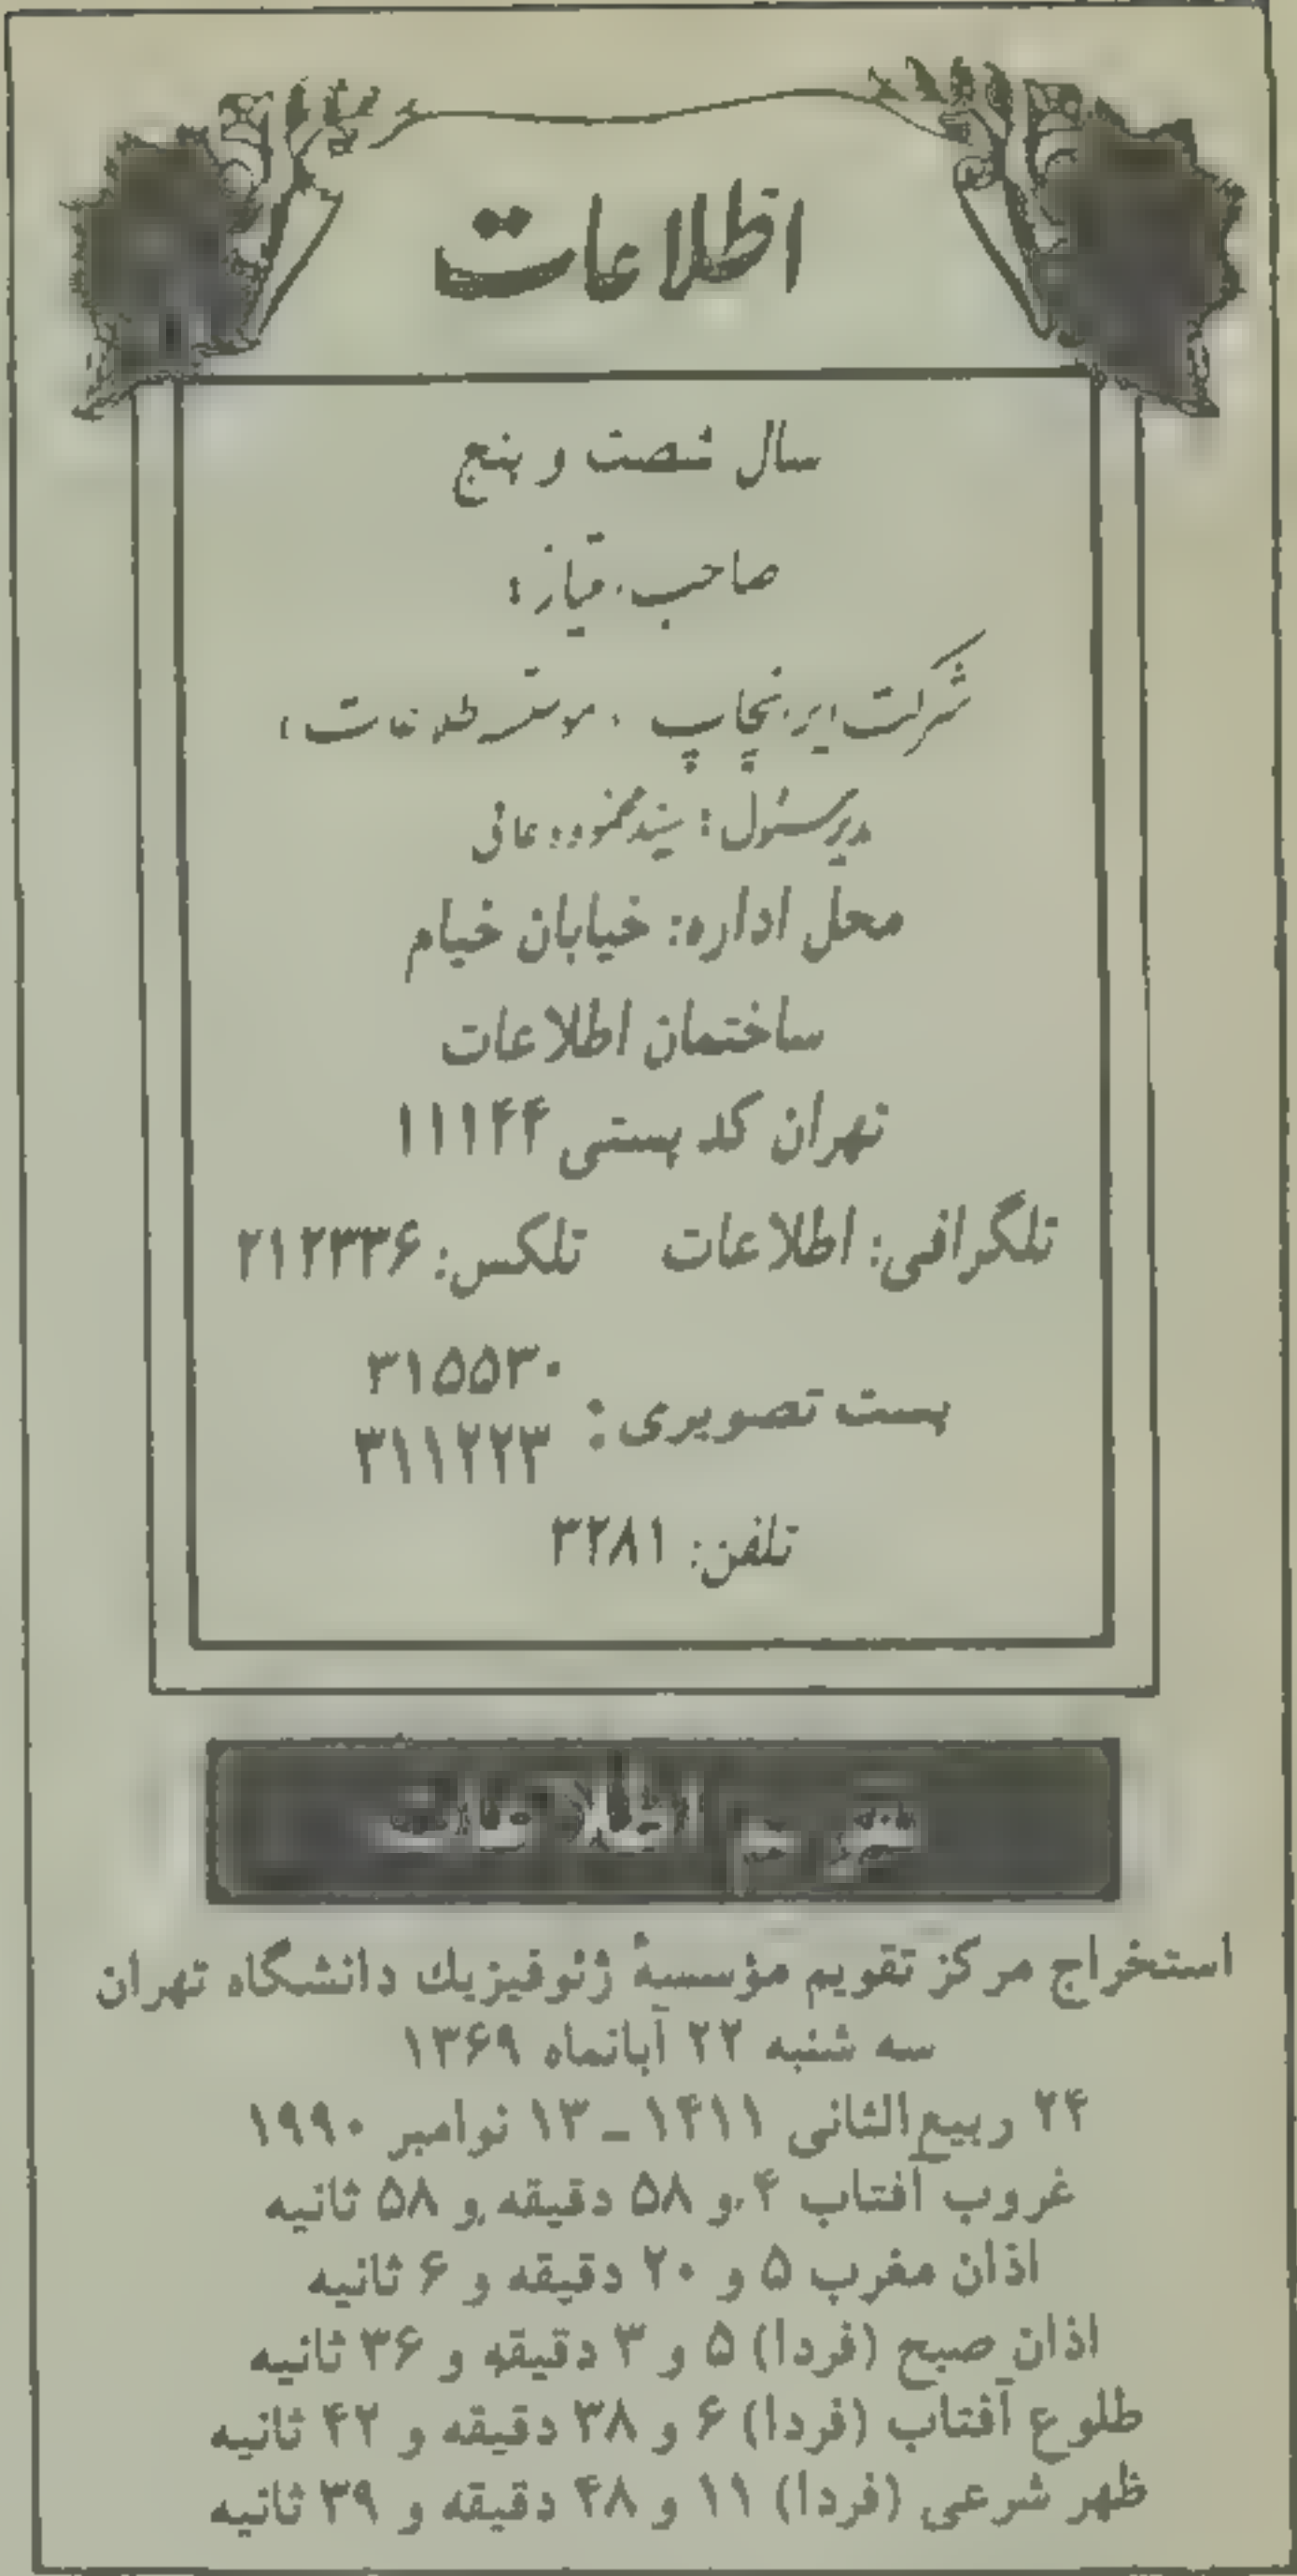 اطلاعات
سال شصت و پنج
صاحب امتیاز:
شرکت ایرانچاپ (موسسه اطلاعات)
مدیر مسئول: سید محمود دعائی
محل اداره: خیابان خیام
ساختمان اطلاعات
تهران کد پستی ۱۱۱۴۴
تلگرافی: اطلاعات تلکس: ۲۱۲۳۳۶
پست تصویری: ۳۱۵۵۳۰
۳۱۱۲۲۳
تلفن: ۳۲۸۱
تقویم اطلاعات
استخراج مرکز تقویم مؤسسهٔ ژئوفیزیك دانشگاه تهران
سه شنبه ۲۲ آبانماه ۱۳۶۹
۲۴ ربیع‌الثانی ۱۴۱۱ ـ ۱۳ نوامبر ۱۹۹۰
غروب آفتاب ۴ و ۵۸ دقیقه و ۵۸ ثانیه
اذان مغرب ۵ و ۲۰ دقیقه و ۶ ثانیه
اذان صبح (فردا) ۵ و ۳ دقیقه و ۳۶ ثانیه
طلوع آفتاب (فردا) ۶ و ۳۸ دقیقه و ۴۲ ثانیه
ظهر شرعی (فردا) ۱۱ و ۴۸ دقیقه و ۳۹ ثانیه